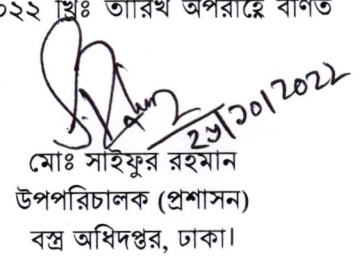 ২০২২ খ্রিঃ তারিখ অপরাহ্নে বর্ণিত
মোঃ সাইফুর রহমান
উপপরিচালক (প্রশাসন)
বস্ত্র অধিদপ্তর, ঢাকা।